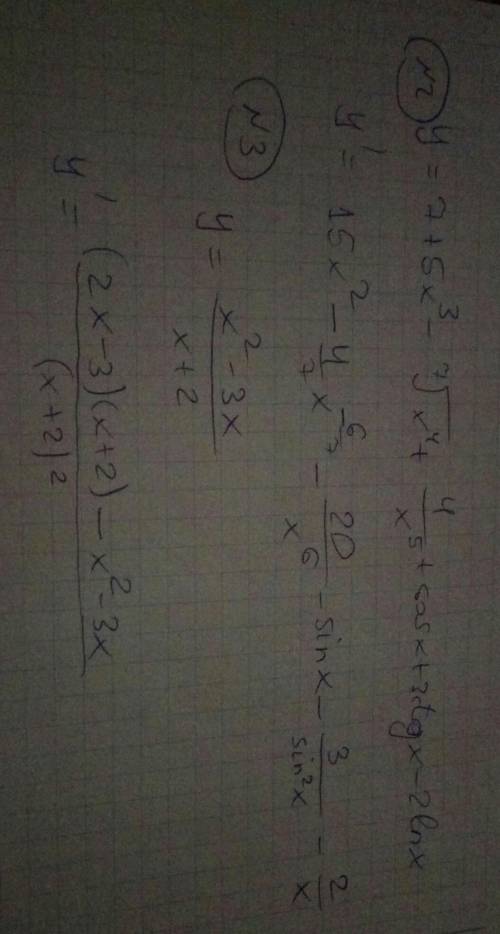 №2 y = 7 + 5x³ - ⁷√x⁴ + 4/x⁵ + cos x + 3ctg x - 2ln x
y' = 15x² - 4/7 x^(-6/7) - 20/x⁶ - sin x - 3/sin²x - 2/x
№3 y = (x² - 3x)/(x + 2)
y' = ((2x - 3)(x + 2) - x² - 3x)/(x + 2)²